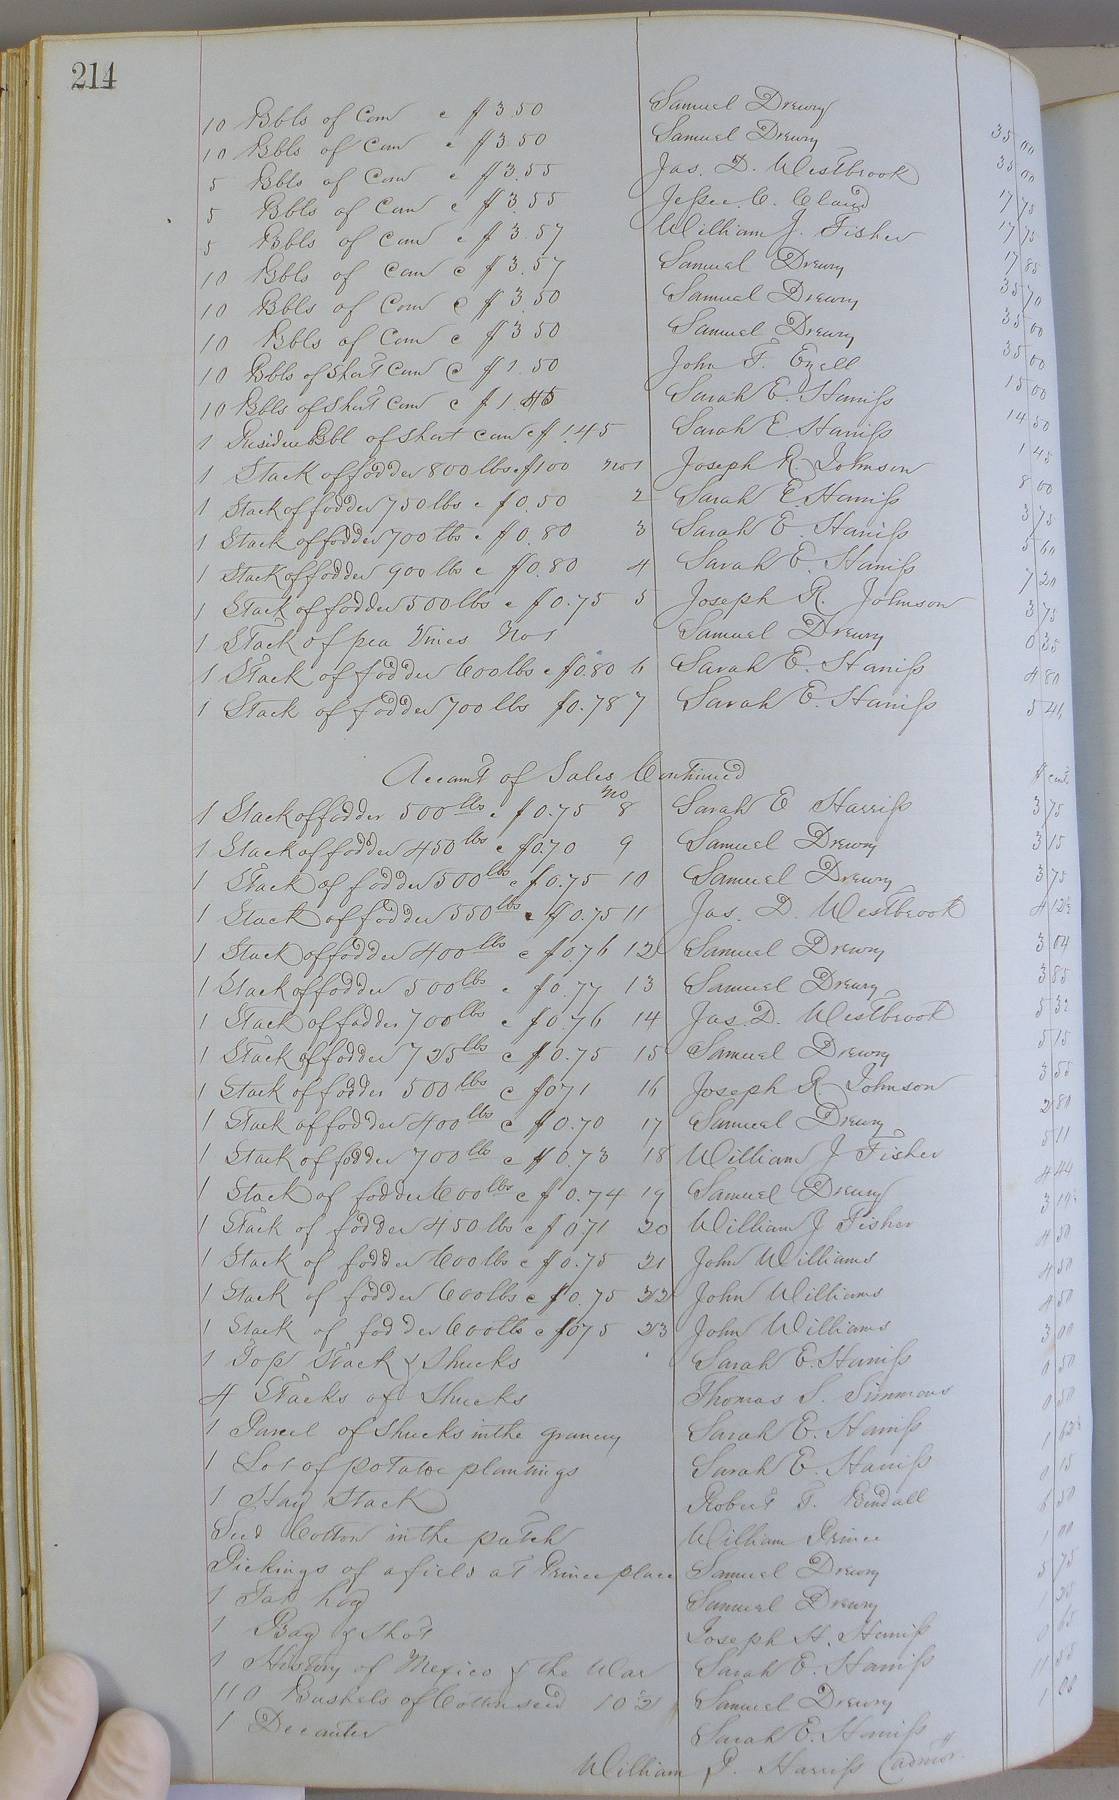 214
10 Bbls of Corn @ $3.50 Samuel Drewry 35 00
10 Bbls of Corn @ $3.50 Samuel Drewry 35 00
5 Bbls of Corn @ $3.55 Jas. D. Westbrook 17 75
5 Bbls of Corn @ $3.55 Jessee C. Claud 17 75
5 Bbls of Corn @ $3.57 William J. Fisher 17 85
10 Bbls of Corn @ $3.57 Samuel Drewry 35 70
10 Bbls of Corn @ $3.50 Samuel Drewry 35 00
10 Bbls of Corn @ $3.50 Samuel Drewry 35 00
10 Bbls of Short Corn @ $1.50 John F. Ezell 15 00
10 Bbls of Short Corn @ $1.45 Sarah E. Harriss 14 50
1 Residue Bbl of Short corn @ $1.45 Sarah E. Harriss 1 45
1 Stack of fodder 800 lbs @ $1.00 No 1 Joseph R. Johnson 8 00
1 Stack of fodder 750 lbs @ $0.50 2 Sarah E. Harriss 3 75
1 Stack of fodder 700 lbs @ $0.80 3 Sarah E. Harriss 5 60
1 Stack of fodder 900 lbs @ $0.80 4 Sarah E. Harriss 7 20
1 Stack of fodder 500 lbs @ $0.75 5 Joseph R. Johnson 3 75
1 Stack of pea Vines No 1 Samuel Drewry 0 35
1 Stack of fodder 600 lbs @ $0.80 6 Sarah E. Harriss 4 80
1 Stack of fodder 700 lbs $0.78 7 Sarah E. Harriss 5 46
Account of Sales Continued $ cents
1 Stack of fodder 500 lbs @ $0.75 No 8 Sarah E Harriss 3 75
1 Stack of fodder 450 lbs @ $0.70 9 Samuel Drewry 3 15
1 Stack of fodder 500 lbs @ $0.75 10 Samuel Drewry 3 75
1 Stack of fodder 550 lbs @ $0.75 11 Jas. D. Westbrook 4 12½
1 Stack of fodder 400 lbs @ $0.76 12 Samuel Drewry 3 04
1 Stack of fodder 500 lbs @ $0.77 13 Samuel Drewry 3 85
1 Stack of fodder 700 lbs @ $0.76 14 Jas. D. Westbrook 5 32
1 Stack of fodder 725 lbs @ $0.75 15 Samuel Drewry 5 15
1 Stack of fodder 500 lbs @ $071 16 Joseph R. Johnson 3 55
1 Stack of fodder 400 lbs @ $0.70 17 Samuel Drewry 2 80
1 Stack of fodder 700 lbs @ $0.73 18 William J Fisher 5 11
1 Stack of fodder 600 lbs @ $0.74 19 Samuel Drewry 4 44
1 Stack of fodder 450 lbs @ $0.71 20 William J Fisher 3 19½
1 Stack of fodder 600 lbs @ $0.75 21 John Williams 4 50
1 Stack of fodder 600 lbs @ $0.75 22 John Williams 4 50
1 Stack of fodder 600 lbs @ $075 23 John Williams 4 50
1 Top Stack & Shucks Sarah E. Harriss 3 00
4 Stacks of Shucks Thomas S. Simmons 0 50
1 Parcel of Shucks in the granery Sarah E. Harriss 0 50
1 Lot of potatoe plantings Sarah E. Harriss 1 62½
1 Hay Stack Robert T. Kindall 0 15
Seed Cotton in the patch William Prince 6 50
Pickings of a field at Prince place Samuel Drewry 1 00
1 Samuel Drewry 5 75
1 Bag & Shot Joseph H. Harriss 1 25
1 History of Mexico & the War Sarah E. Harriss 0 65
110 Bushels of Cotton seed 10½ Samuel Drewry 11 55
1 Decanter Sarah E. Harriss 1 00
William P. Harriss admr.